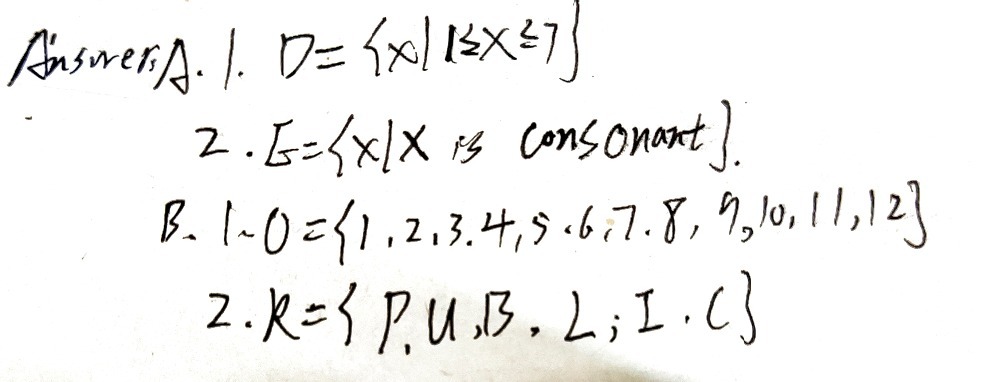 Answers A. 1. D={x|1≤x≤7}
2. E={x|x is consonant}.
B. 1. O={1,2,3.4,5.6,7.8,9,10,11,12}
2. R={P,U,B,L,I.C}